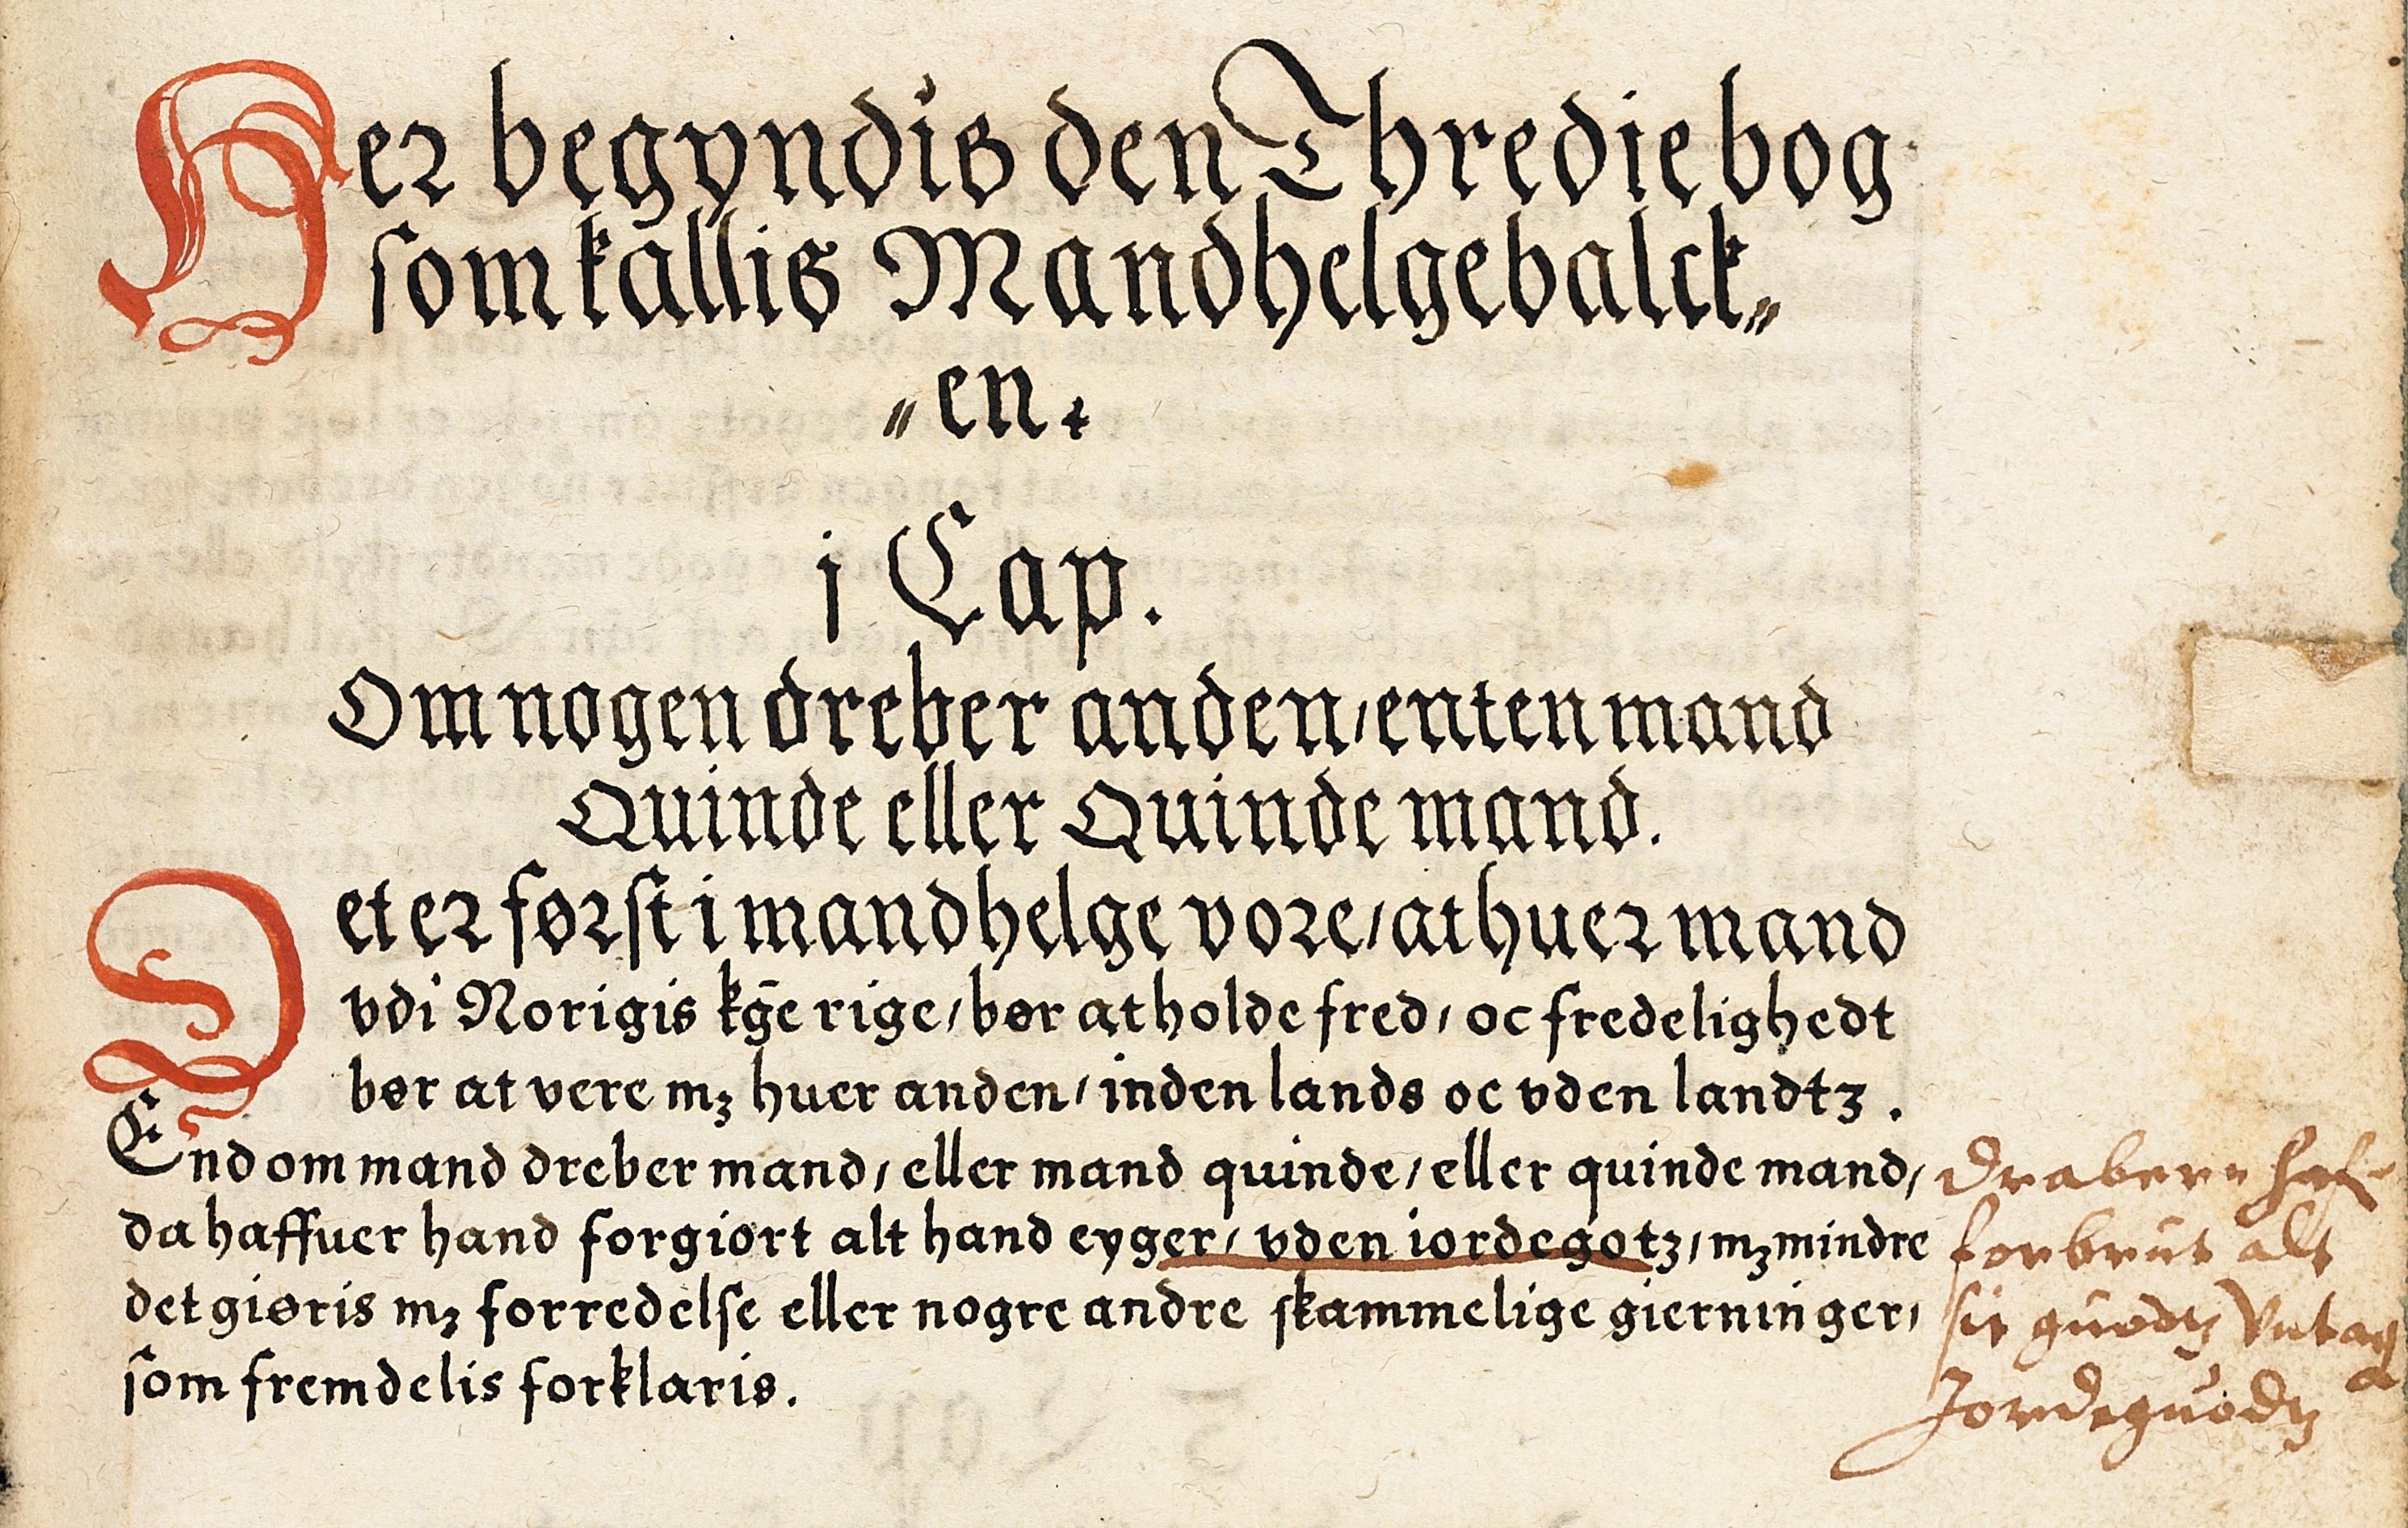 Her begyndis den Thredie bog
som kallis Mandhelgebalck〃
〃en.
j Cap.
Om nogen dreber anden/ enten mand
Quinde eller Quinde mand.
Det er først i mandhelge vore/ at huer mand
vdi Norigis kḡe rige/ bør at holde fred/ oc fredelighedt
bør at vere mꝫ huer anden/ inden lands oc vden landtꝫ.
End om mand dreber mand/ eller mand quinde/ eller quinde mand/
da haffuer hand forgiørt alt hand eyger/ vden iordegotꝫ/ mꝫ mindre
det giøris mꝫ forredelse eller nogre andre skammelige gierninger/
som fremdelis forklaris.
Draberen
forbrut alt
sit guodtꝫ Vntag
Jordeguodtꝫ